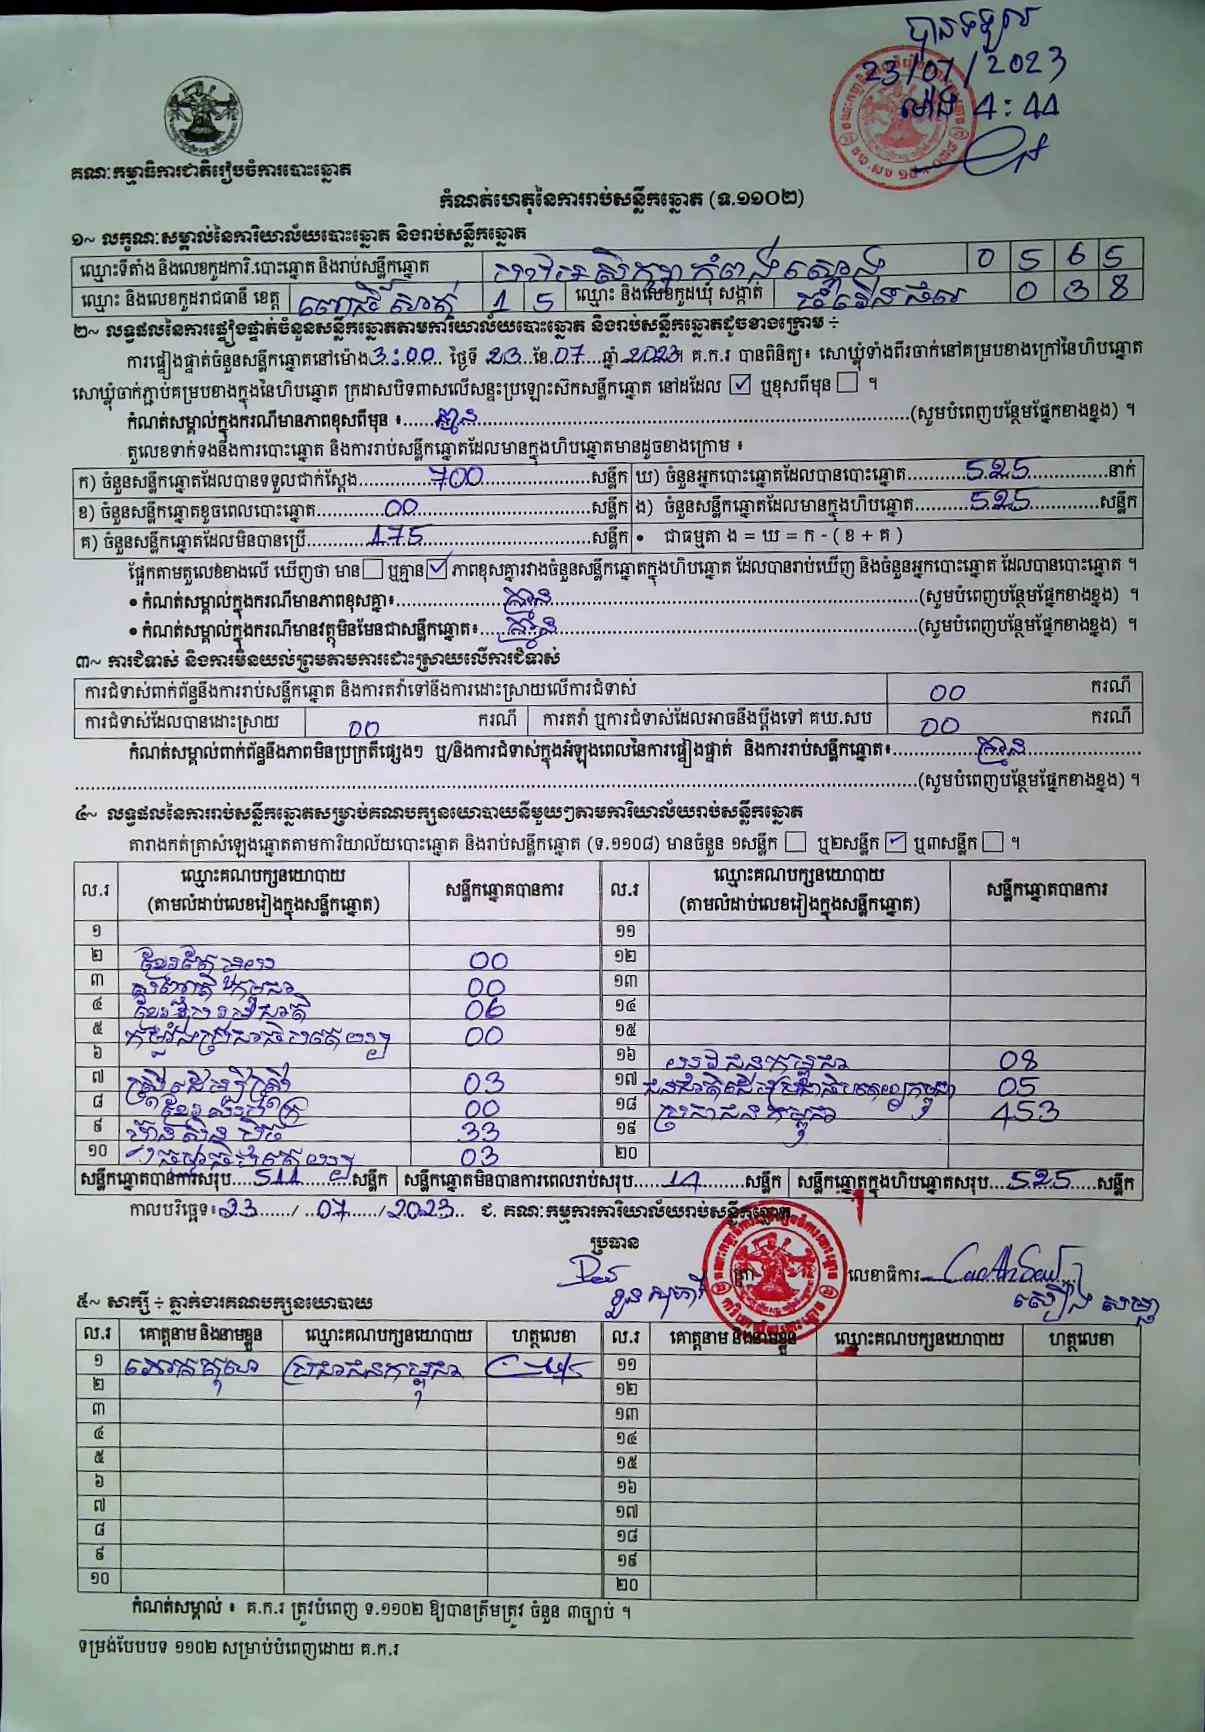 បានទទួល
23/07/2023
ម៉ោង 4:44
គណៈកម្មាធិការជាតិរៀបចំការបោះឆ្នោត
កំណត់ហេតុនៃការរាប់សន្លឹកឆ្នោត (ទ.១១០២)
១~ លក្ខណៈសម្គាល់នៃការិយាល័យបោះឆ្នោត និងរាប់សន្លឹកឆ្នោត
ឈ្មោះទីតាំង និងលេខកូដការិ.បោះឆ្នោត និងរាប់សន្លឹកឆ្នោត 0 5 6 5
ឈ្មោះ និងលេខកូដរាជធានី ខេត្ត ពោធិ៍សាត់ 1 5 ឈ្មោះ និងលេខកូដឃុំ សង្កាត់ 0 3 8
២~ លទ្ធផលនៃការផ្ទៀងផ្ទាត់ចំនួនសន្លឹកឆ្នោតតាមការិយាល័យបោះឆ្នោត និងរាប់សន្លឹកឆ្នោតដូចខាងក្រោម ÷
ការផ្ទៀងផ្ទាត់ចំនួនសន្លឹកឆ្នោតនៅម៉ោង 3:00 ថ្ងៃទី 23 ខែ 07 ឆ្នាំ 2023។ គ.ក.រ បានពិនិត្យ៖ សោឃ្លុំទាំងពីរចាក់នៅគម្របខាងក្រៅនៃហិបឆ្នោត
សោឃ្លុំចាក់ភ្ជាប់គម្របខាងក្នុងនៃហិបឆ្នោត ក្រដាសបិទពាសលើសន្ទះប្រឡោះស៊កសន្លឹកឆ្នោត នៅដដែល ☑ ឬខុសពីមុន ☐ ។
កំណត់សម្គាល់ក្នុងករណីមានភាពខុសពីមុន ៖ គ្មាន (សូមបំពេញបន្ថែមផ្នែកខាងខ្នង) ។
តួលេខទាក់ទងនឹងការបោះឆ្នោត និងការរាប់សន្លឹកឆ្នោតដែលមានក្នុងហិបឆ្នោតមានដូចខាងក្រោម ៖
ក) ចំនួនសន្លឹកឆ្នោតដែលបានទទួលជាក់ស្តែង 700 សន្លឹក ឃ) ចំនួនអ្នកបោះឆ្នោតដែលបានបោះឆ្នោត 525 នាក់
ខ) ចំនួនសន្លឹកឆ្នោតខូចពេលបោះឆ្នោត 00 សន្លឹក ង) ចំនួនសន្លឹកឆ្នោតដែលមានក្នុងហិបឆ្នោត 525 សន្លឹក
គ) ចំនួនសន្លឹកឆ្នោតដែលមិនបានប្រើ 175 សន្លឹក • ជាធម្មតា ង = ឃ = ក - ( ខ + គ )
ផ្អែកតាមតួលេខខាងលើ ឃើញថា មាន ☐ ឬគ្មាន ☑ ភាពខុសគ្នារវាងចំនួនសន្លឹកឆ្នោតក្នុងហិបឆ្នោត ដែលបានរាប់ឃើញ និងចំនួនអ្នកបោះឆ្នោត ដែលបានបោះឆ្នោត ។
• កំណត់សម្គាល់ក្នុងករណីមានភាពខុសគ្នា៖ គ្មាន (សូមបំពេញបន្ថែមផ្នែកខាងខ្នង) ។
• កំណត់សម្គាល់ក្នុងករណីមានវត្ថុមិនមែនជាសន្លឹកឆ្នោត៖ គ្មាន (សូមបំពេញបន្ថែមផ្នែកខាងខ្នង) ។
៣~ ការជំទាស់ និងការមិនយល់ព្រមតាមការដោះស្រាយលើការជំទាស់
ការជំទាស់ពាក់ព័ន្ធនឹងការរាប់សន្លឹកឆ្នោត និងការតវ៉ាទៅនឹងការដោះស្រាយលើការជំទាស់ 00 ករណី
ការជំទាស់ដែលបានដោះស្រាយ 00 ករណី ការតវ៉ា ឬការជំទាស់ដែលអាចនឹងប្តឹងទៅ គឃ.សប 00 ករណី
កំណត់សម្គាល់ពាក់ព័ន្ធនឹងភាពមិនប្រក្រតីផ្សេងៗ ឬ/និងការជំទាស់ក្នុងអំឡុងពេលនៃការផ្ទៀងផ្ទាត់ និងការរាប់សន្លឹកឆ្នោត៖ គ្មាន
(សូមបំពេញបន្ថែមផ្នែកខាងខ្នង) ។
៤~ លទ្ធផលនៃការរាប់សន្លឹកឆ្នោតសម្រាប់គណបក្សនយោបាយនីមួយៗតាមការិយាល័យរាប់សន្លឹកឆ្នោត
តារាងកត់ត្រាសំឡេងឆ្នោតតាមការិយាល័យបោះឆ្នោត និងរាប់សន្លឹកឆ្នោត (ទ.១១០៨) មានចំនួន ១សន្លឹក ☐ ឬ២សន្លឹក ☑ ឬ៣សន្លឹក ☐ ។
ល.រ ឈ្មោះគណបក្សនយោបាយ (តាមលំដាប់លេខរៀងក្នុងសន្លឹកឆ្នោត) សន្លឹកឆ្នោតបានការ ល.រ ឈ្មោះគណបក្សនយោបាយ (តាមលំដាប់លេខរៀងក្នុងសន្លឹកឆ្នោត) សន្លឹកឆ្នោតបានការ
១ ១១
២ 00 ១២
៣ 00 ១៣
៤ 06 ១៤
៥ កម្លាំងប្រជាធិបតេយ្យ 00 ១៥
៦ ១៦ យុវជនកម្ពុជា 08
៧ ស្ត្រីដើម្បីស្ត្រី 03 ១៧ ជនជាតិដើមប្រជាធិបតេយ្យកម្ពុជា 05
៨ 00 ១៨ ប្រជាជនកម្ពុជា 453
៩ ហ៊្វុនស៊ិនប៉ិច 33 ១៩
១០ 03 ២០
សន្លឹកឆ្នោតបានការសរុប 511 សន្លឹក សន្លឹកឆ្នោតមិនបានការពេលរាប់សរុប 14 សន្លឹក សន្លឹកឆ្នោតក្នុងហិបឆ្នោតសរុប 525 សន្លឹក
កាលបរិច្ឆេទ៖ 23 / 07 / 2023 ជ. គណៈកម្មការការិយាល័យរាប់សន្លឹកឆ្នោត
ប្រធាន
ត្រា លេខាធិការ
៥~ សាក្សី ÷ ភ្នាក់ងារគណបក្សនយោបាយ
ល.រ គោត្តនាម និងនាមខ្លួន ឈ្មោះគណបក្សនយោបាយ ហត្ថលេខា ល.រ គោត្តនាម និងនាមខ្លួន ឈ្មោះគណបក្សនយោបាយ ហត្ថលេខា
១ ប្រជាជនកម្ពុជា ១១
២ ១២
៣ ១៣
៤ ១៤
៥ ១៥
៦ ១៦
៧ ១៧
៨ ១៨
៩ ១៩
១០ ២០
កំណត់សម្គាល់ ៖ គ.ក.រ ត្រូវបំពេញ ទ.១១០២ ឱ្យបានត្រឹមត្រូវ ចំនួន ៣ច្បាប់ ។
ទម្រង់បែបបទ ១១០២ សម្រាប់បំពេញដោយ គ.ក.រ